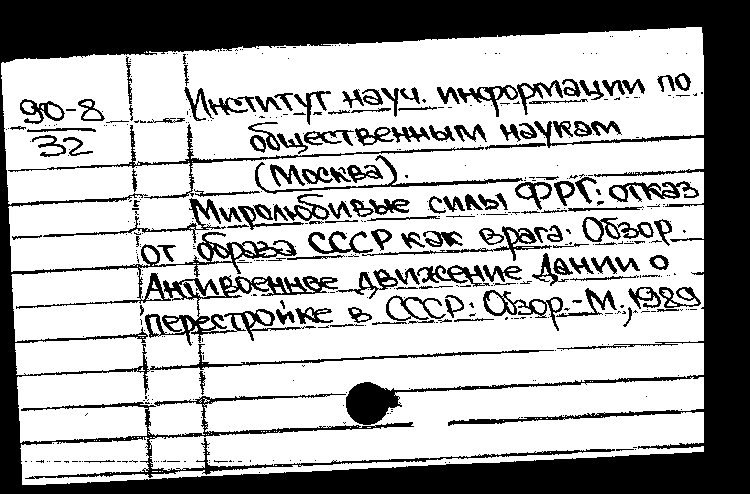 90-8
32
Институт науч. информации по
общественным наукам
(Москва).
Миролюбивые силы ФРГ: отказ
от образа СССР как врага: Обзор.
Антивоенное движение Дании о
перестройке в СССР: Обзор.-М.,1989